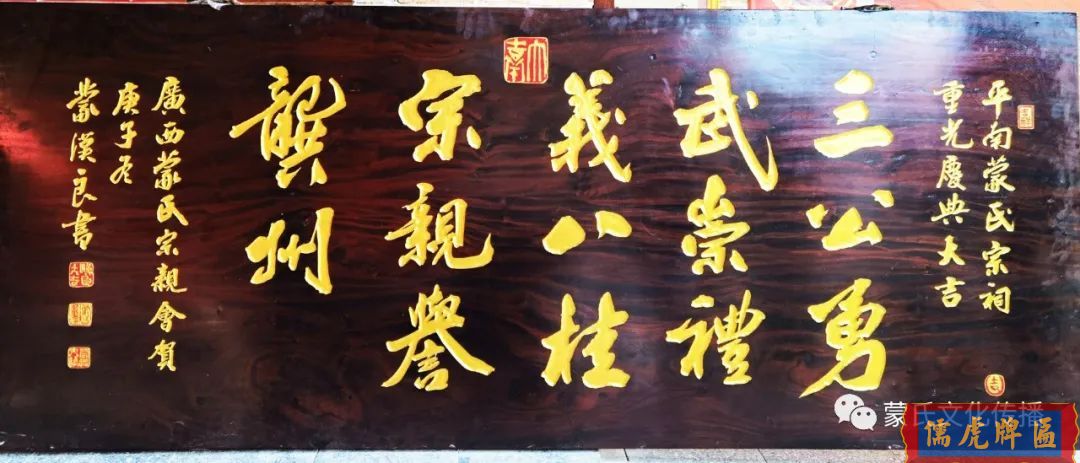 平南蒙氏宗祠
重光慶典大吉
三公勇
武崇禮
義八桂
宗親譽
龔州
廣西蒙氏宗親會賀
庚子冬
蒙漢良書
大吉
蒙氏文化传播
儒虎牌匾